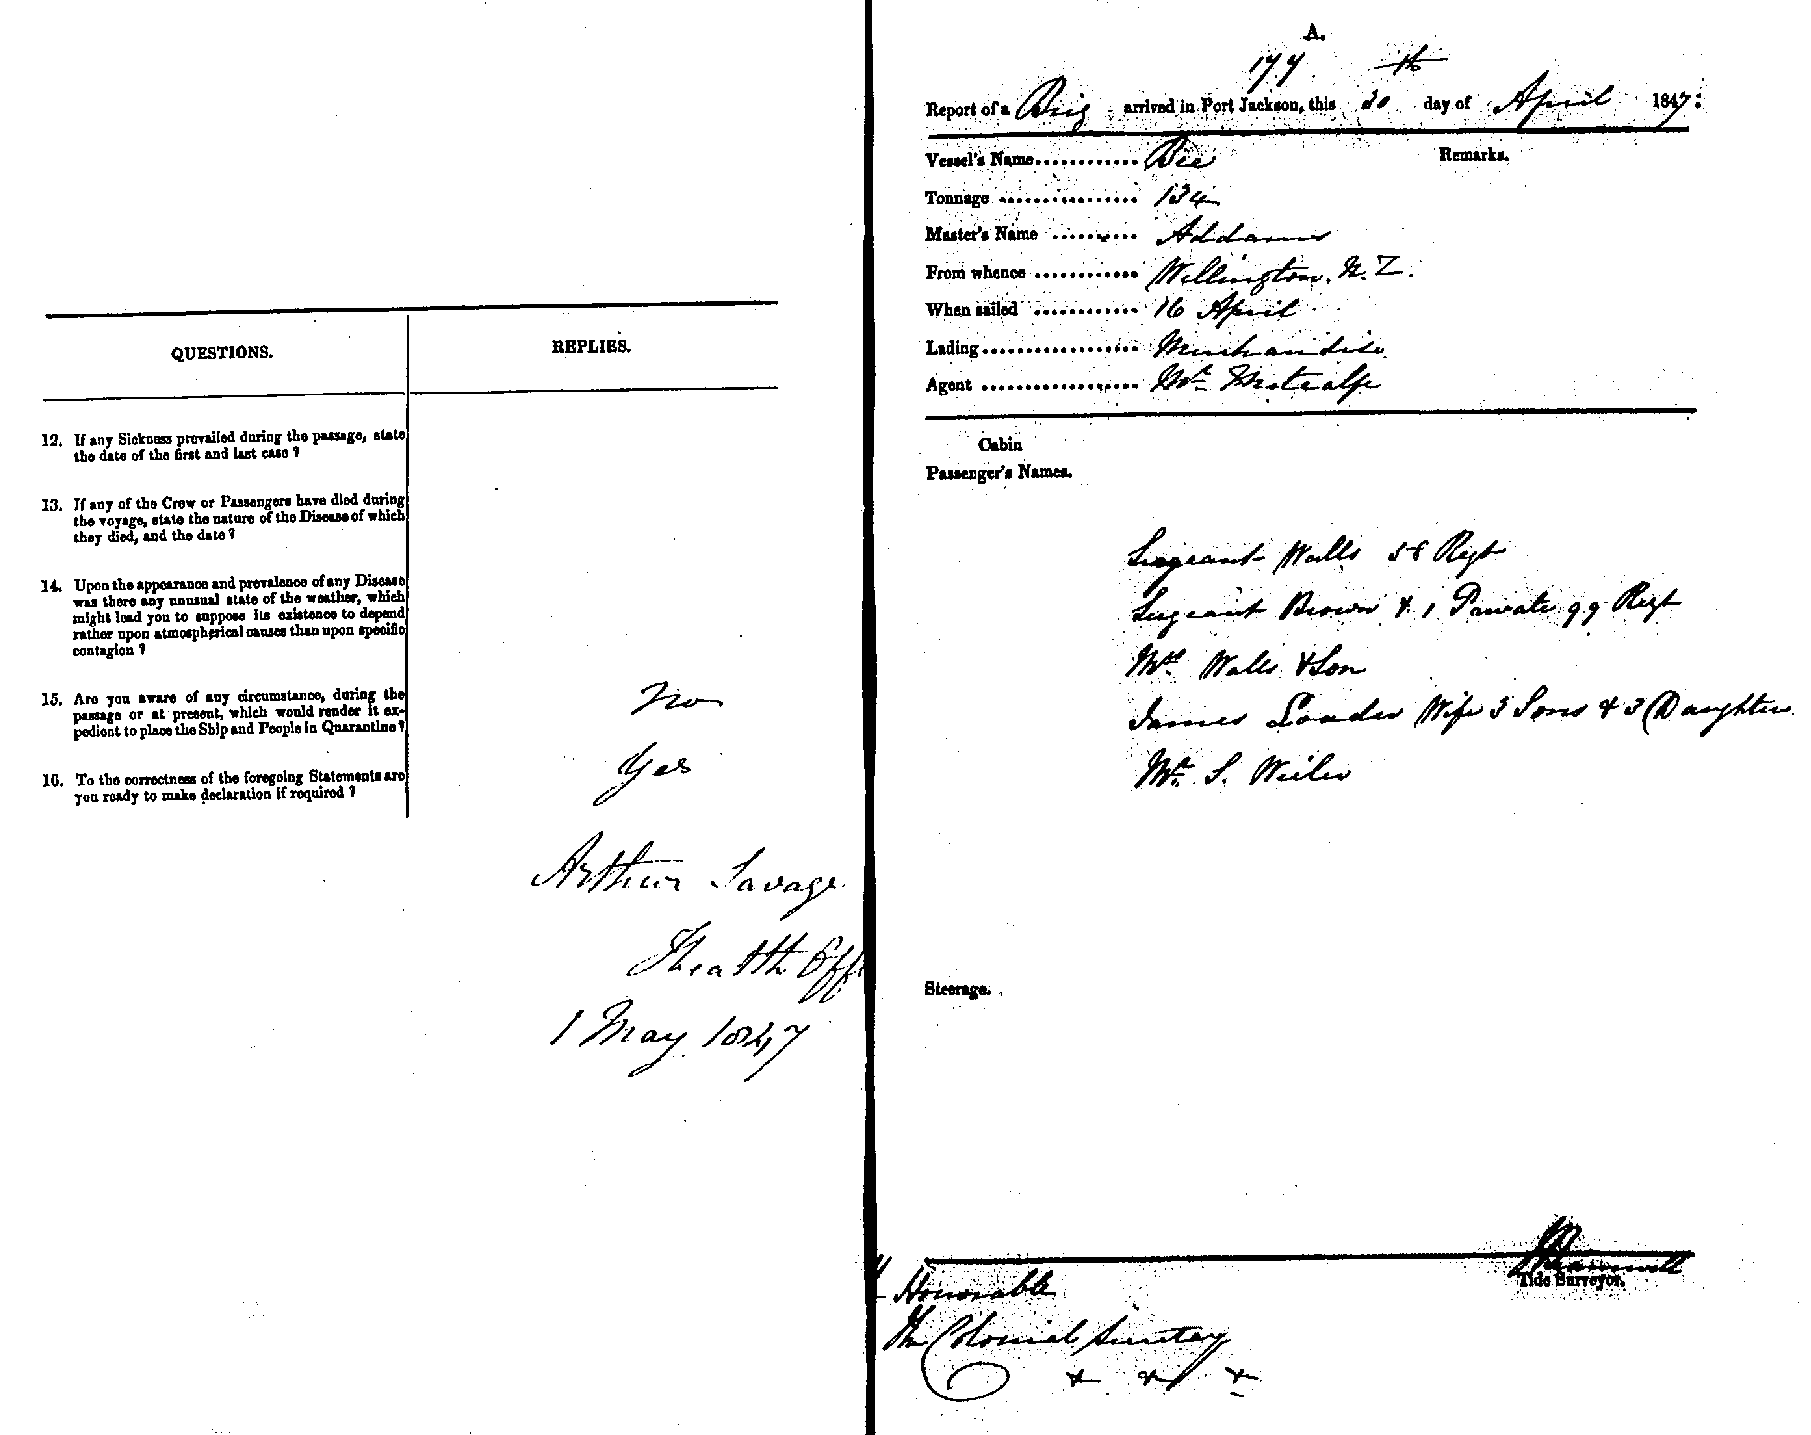 QUESTIONS.
REPLIES.
12. If any Sickness prevailed during the passage, state
the date of the first and last case ?
13. If any of the Crew or Passengers have died during
the voyage, state the nature of the Disease of which
they died, and the date ?
14. Upon the appearance and prevalence of any Disease
was there any unusual state of the weather, which
might lead you to suppose its existence to depend
rather upon atmospherical causes than upon specific
contagion ?
15. Are you aware of any circumstance, during the
passage or at present, which would render it ex-
pedient to place the Ship and People in Quarantine ?
No
16. To the correctness of the foregoing Statements are
you ready to make declaration if required ?
Yes
Arthur Savage
Health Off
1 May 1847
A.
177 th
Report of a Brig arrived in Port Jackson, this 30 day of April 1847:
Vessel's Name............ Bee
Remarks.
Tonnage ................ 134
Master's Name .......... Addams
From whence ............ Wellington. N. Z.
When sailed ............ 16 April
Lading.................. Merchandise
Agent .................. Mr Metcalfe
Cabin
Passenger's Names.
Sergeant Walls 58 Regt
Sergeant Brown & 1 Private 99 Regt
Mrs Walls & Son
James Louder Wife 3 Sons & 3 Daughters
Mr S.
Steerage.
Tide Surveyor.
Honorable
The Colonial Secretary
& & &